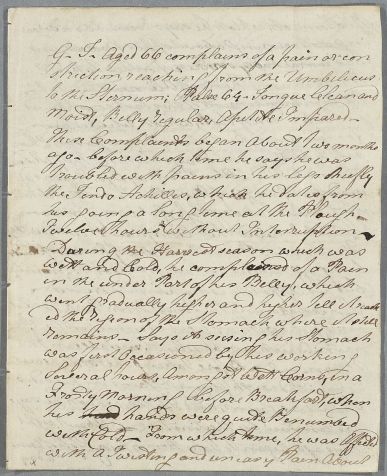 G- F- Aged 66 complains of a pain or con
striction reaching from the Umbilicus
to the Sternum; Pulse 64 - Tongue Clean and
Moist, Belly regular, Apetite Impared -
These Complaints began About two months
ago - before which time he says he was
troubled with pains in his legs chiefly
the Tendo Achilles, which he dates from
his going a long time at the Plough -
Twelve hours without Interruption -
During the Harvest season which was
Wett and Cold, he complained of a Pain
in the under Part of his Belly, which
went gradually higher and higher till it reach
ed the region of the Stomach where it still
remains - Says A in his Stomach
was first Occasioned by his working
Several hours, Amongst Wett Corn, in a
Frosty Morning before Breakfast, when
his hands were quite Benumbed
with Cold - From which time, he was Afflicted
with a Twisting and uneasy Pain About